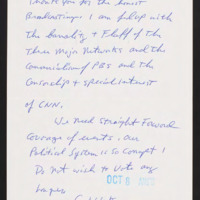 Thank you for the honest
Broadcasting. I am fed up with
the banality & Fluff of the
Three Major Networks and the
Commercialism of PBS and the
Censorship & special interest
of CNN.
We need straight Forward
Coverage of events. Our
Political System is So Corrupt I
Do not wish to Vote any
longer
OCT 8